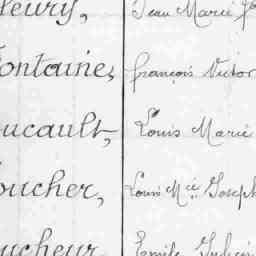 leury, Jean Marie
ontaine, françois Victor
ucault, Louis Marie
oucher, Louis Mie Joseph
ucheur Emile Julien